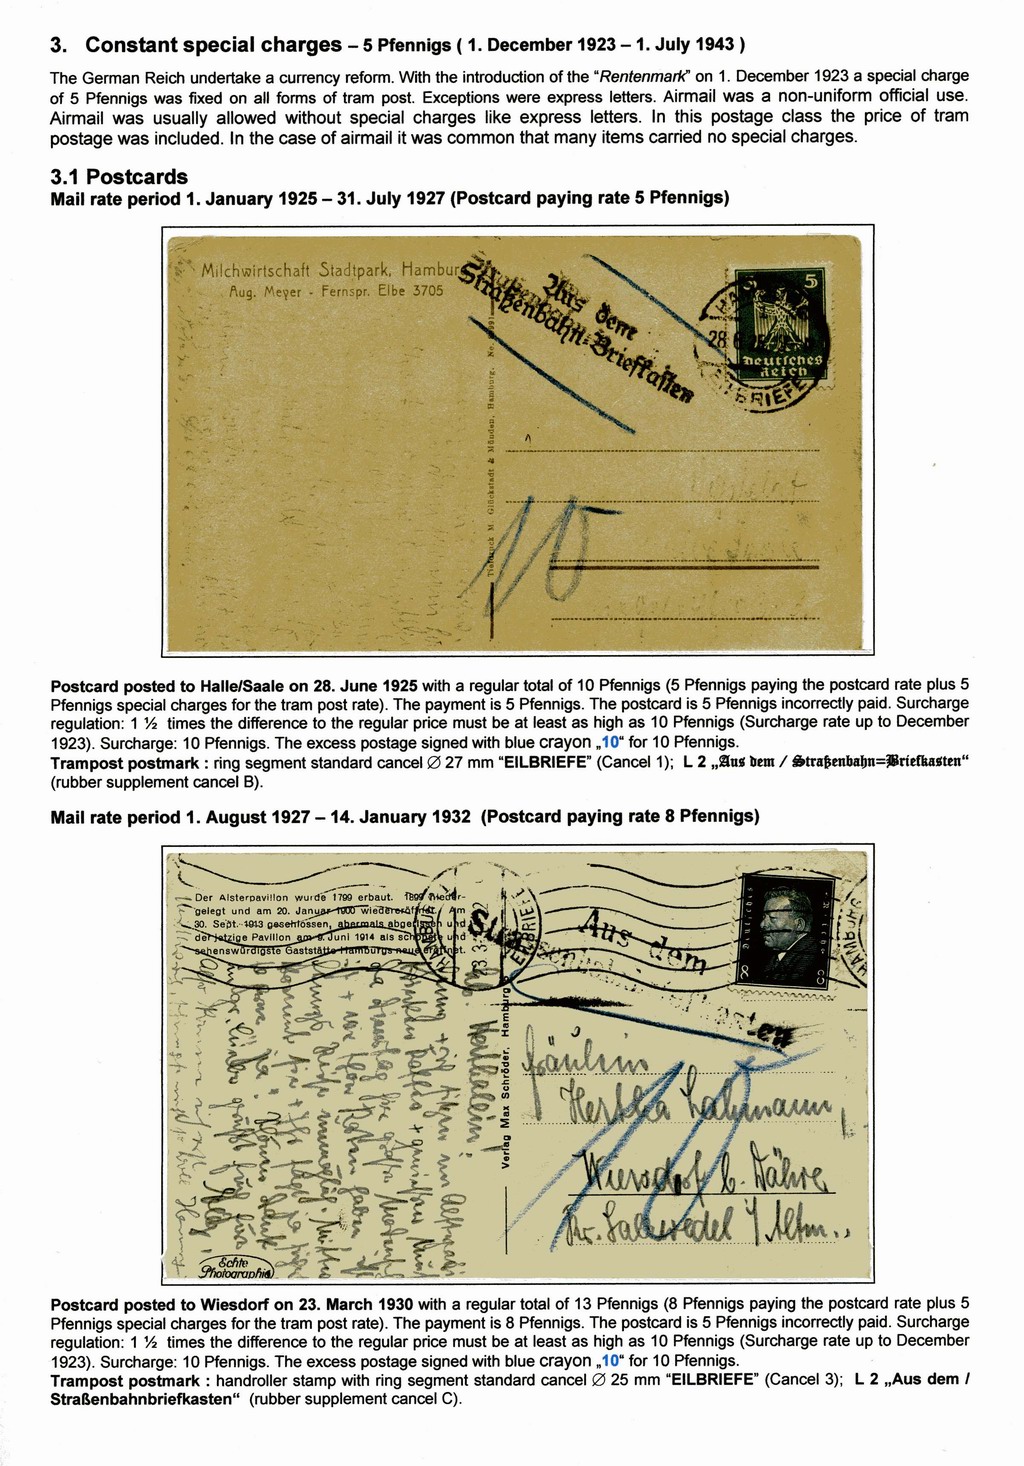 3. Constant special charges – 5 Pfennigs ( 1. December 1923 – 1. July 1943 )
The German Reich undertake a currency reform. With the introduction of the "Rentenmark" on 1. December 1923 a special charge
of 5 Pfennigs was fixed on all forms of tram post. Exceptions were express letters. Airmail was a non-uniform official use.
Airmail was usually allowed without special charges like express letters. In this postage class the price of tram
postage was included. In the case of airmail it was common that many items carried no special charges.
3.1 Postcards
Mail rate period 1. January 1925 – 31. July 1927 (Postcard paying rate 5 Pfennigs)
Milchwirtschaft Stadtpark, Hamburg
Aug. Meyer - Fernspr. Elbe 3705
Aus dem
Straßenbahn=Briefkasten
5
Deutsches
Reich
28
EILBRIEFE
M. Glückstadt & Münden, Hamburg.
10
Postcard posted to Halle/Saale on 28. June 1925 with a regular total of 10 Pfennigs (5 Pfennigs paying the postcard rate plus 5
Pfennigs special charges for the tram post rate). The payment is 5 Pfennigs. The postcard is 5 Pfennigs incorrectly paid. Surcharge
regulation: 1 ½ times the difference to the regular price must be at least as high as 10 Pfennigs (Surcharge rate up to December
1923). Surcharge: 10 Pfennigs. The excess postage signed with blue crayon „10“ for 10 Pfennigs.
Trampost postmark : ring segment standard cancel ∅ 27 mm "EILBRIEFE" (Cancel 1); L 2 „Aus dem / Straßenbahn=Briefkasten“
(rubber supplement cancel B).
Mail rate period 1. August 1927 – 14. January 1932 (Postcard paying rate 8 Pfennigs)
Der Alsterpavillon wurde 1799 erbaut. 1899 nieder-
gelegt und am 20. Januar 1900 wiedereröffnet. Am
30. Sept. 1913 geschlossen, abermals abgerissen und
der jetzige Pavillon am 9. Juni 1914 als schönste und
sehenswürdigste Gaststätte Hamburgs neu eröffnet.
EILBRIEFE
Aus dem
8
Verlag Max Schröder, Hamburg
Fräulein
Hertha Lahmann,
10
Wiersdorf b. Dähre
Kr. Salzwedel i/Altm.
Echte
Photographie
Postcard posted to Wiesdorf on 23. March 1930 with a regular total of 13 Pfennigs (8 Pfennigs paying the postcard rate plus 5
Pfennigs special charges for the tram post rate). The payment is 8 Pfennigs. The postcard is 5 Pfennigs incorrectly paid. Surcharge
regulation: 1 ½ times the difference to the regular price must be at least as high as 10 Pfennigs (Surcharge rate up to December
1923). Surcharge: 10 Pfennigs. The excess postage signed with blue crayon „10“ for 10 Pfennigs.
Trampost postmark : handroller stamp with ring segment standard cancel ∅ 25 mm "EILBRIEFE" (Cancel 3); L 2 „Aus dem /
Straßenbahnbriefkasten“ (rubber supplement cancel C).